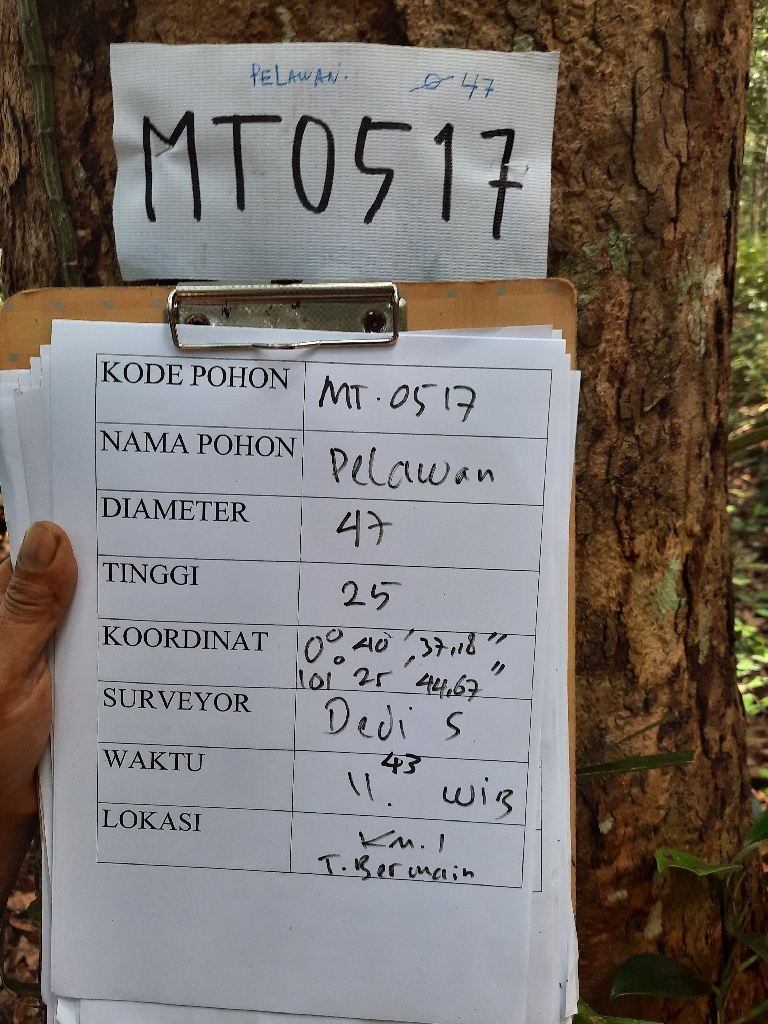 PELAWAN. ⌀ 47
MT0517
KODE POHON MT. 0517
NAMA POHON Pelawan
DIAMETER 47
TINGGI 25
KOORDINAT 0° 40' 37,18"
101° 25' 44,67"
SURVEYOR Dedi S
WAKTU 11. 43 WIB
LOKASI Km. 1
T. Bermain